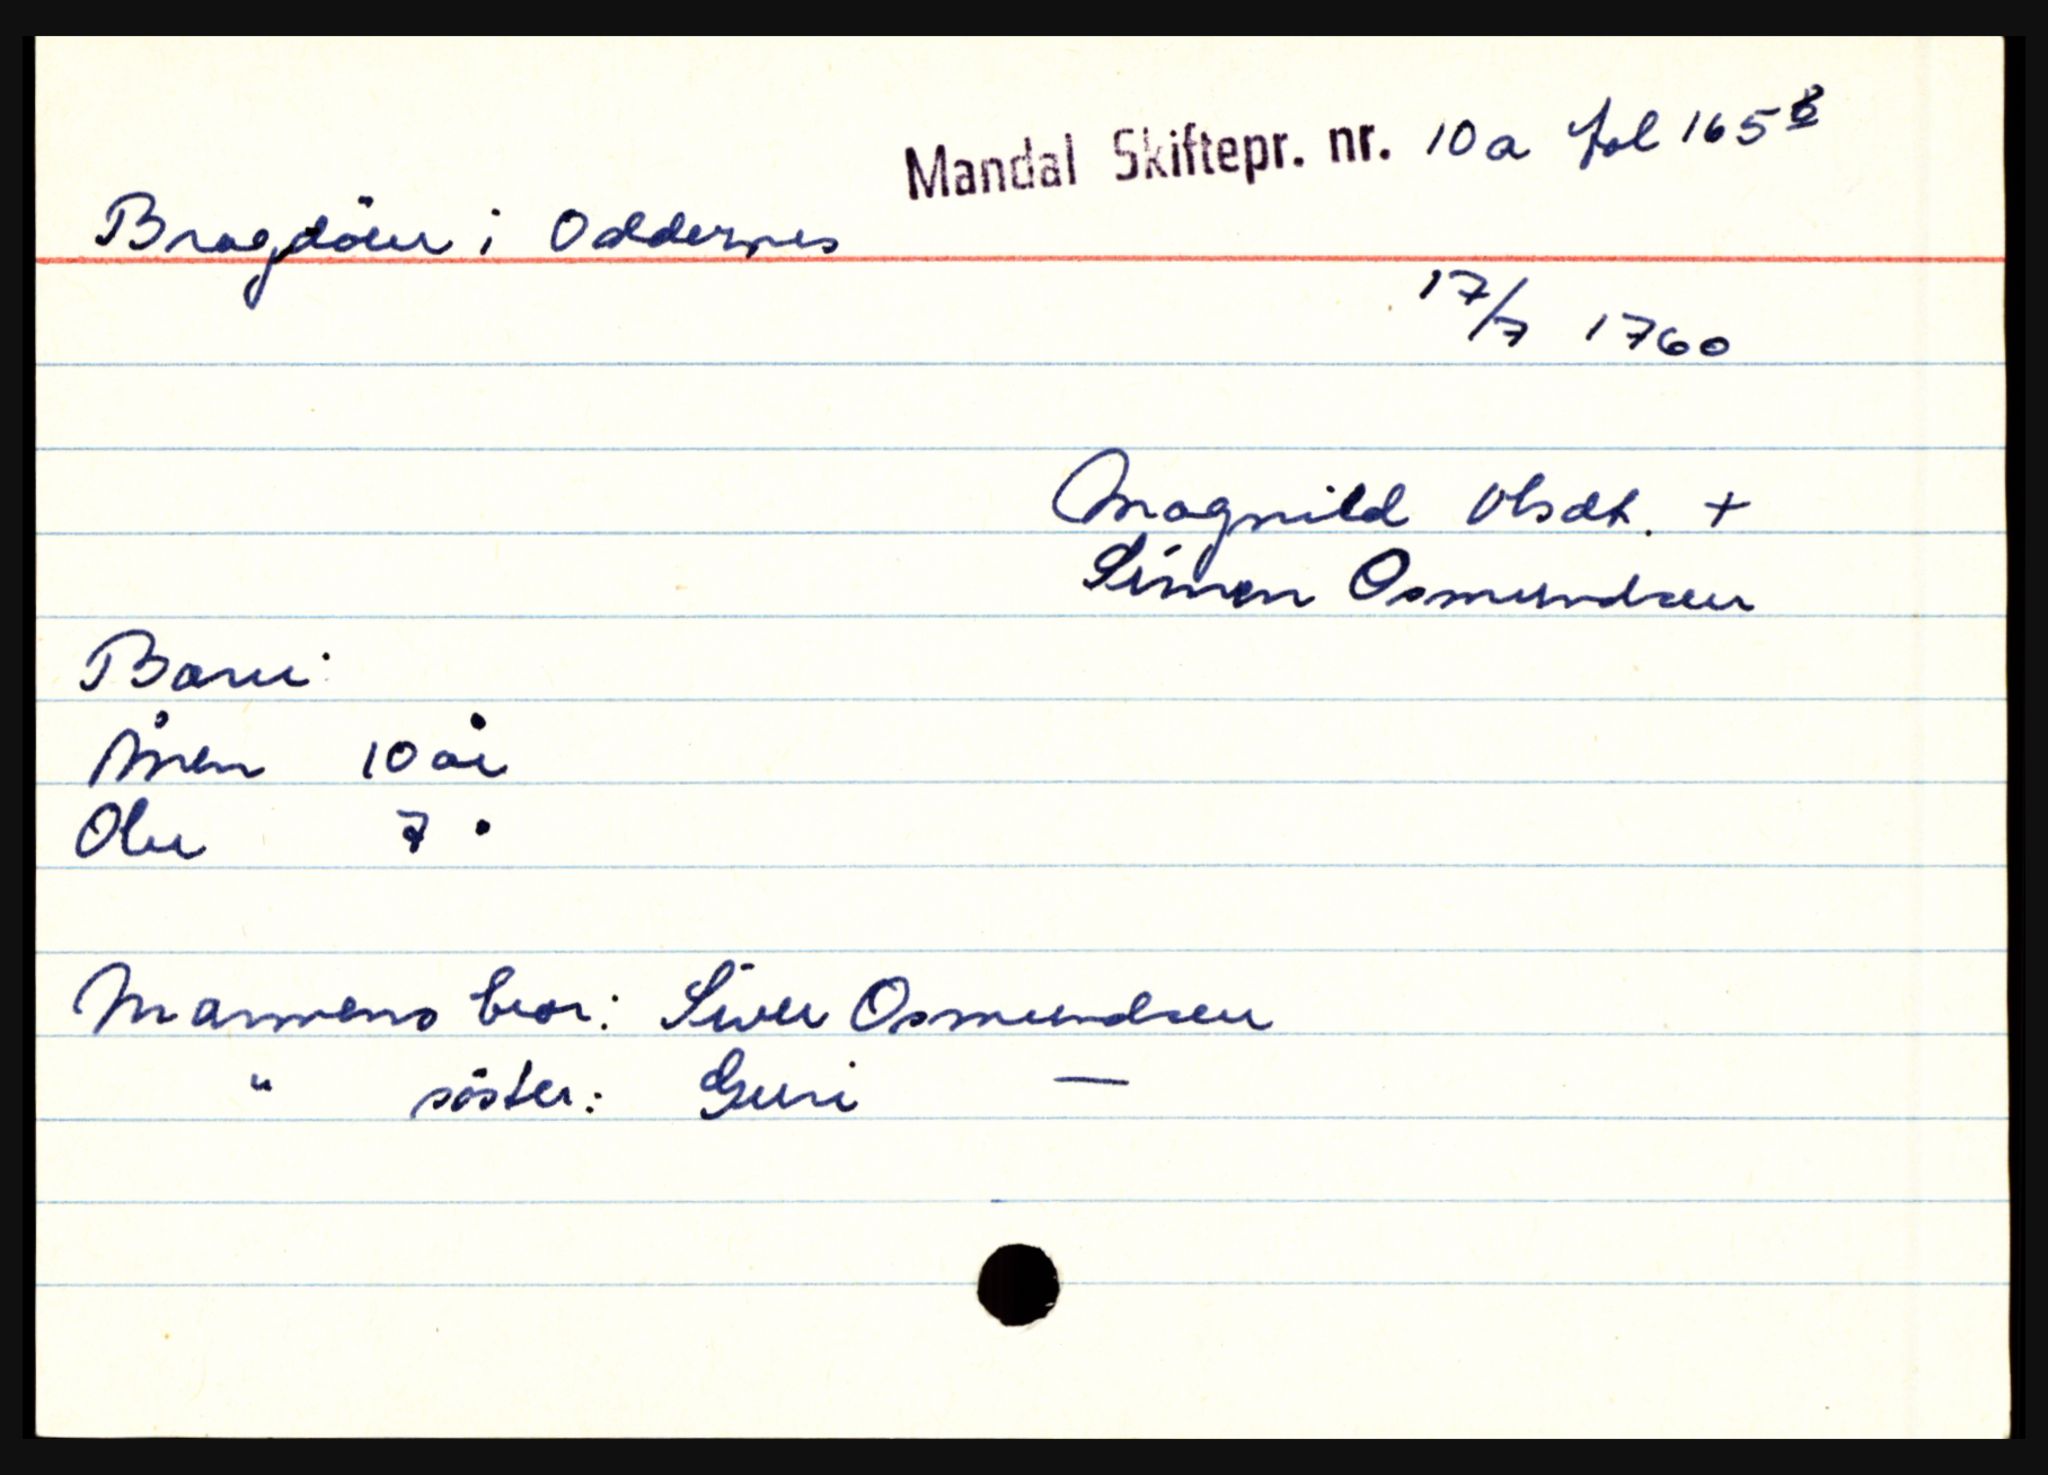 Mandal Skiftepr. nr. 10a fol 165 b
Bragdöen i Oddernes
17/7 1760
Magnild Olsdt. +
Simen Osmundsen
Barn:
Ånen 10 år
Ole 7 "
Mannens bror: Siver Osmundsen
" söster: Guri —